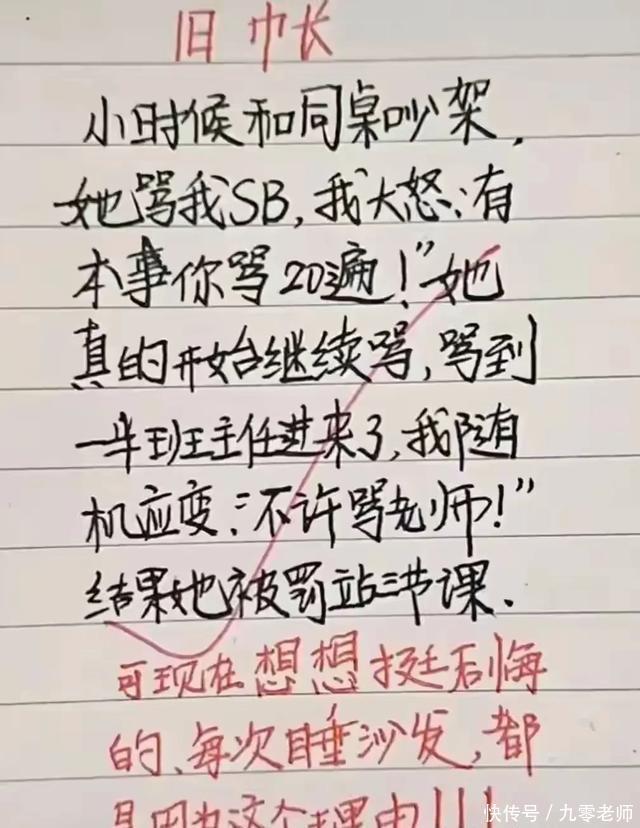 旧巾长
小时候和同桌吵架,
她骂我SB,我大怒:有
本事你骂20遍!"她
真的开始继续骂,骂到
一半班主任进来了,我随
机应变:"不许骂老师!"
结果她被罚站三节课.
可现在想想挺后悔
的、每次睡沙发,都
是因为这个理由!!!
快传号/九零老师